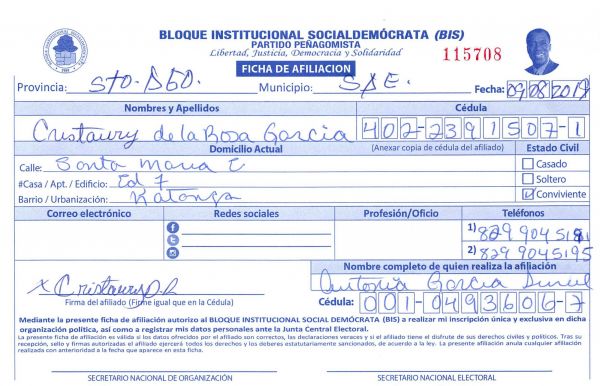 BLOQUE INSTITUCIONAL SOCIALDEMÓCRATA (BIS)
PARTIDO PEÑAGOMISTA
Libertad, Justicia, Democracia y Solidaridad
115708
FICHA DE AFILIACION
Provincia: Sto. Dgo. Municipio: SDE. Fecha: 09/08/2019
Nombres y Apellidos Cédula
Cristaury de la Rosa Garcia 402-2391507-1
Domicilio Actual (Anexar copia de cédula del afiliado) Estado Civil
Calle: Santa Maria E Casado
#Casa / Apt. / Edificio: Ed 7 Soltero
Barrio / Urbanización: Katanga Conviviente
Correo electrónico Redes sociales Profesión/Oficio Teléfonos
1) 829 904 5181
2) 829 904 5195
Nombre completo de quien realiza la afiliación
x Cristaury Antonia Garcia
Firma del afiliado (Firme igual que en la Cédula) Cédula: 001-0493606-7
Mediante la presente ficha de afiliación autorizo al BLOQUE INSTITUCIONAL SOCIAL DEMÓCRATA (BIS) a realizar mi inscripción única y exclusiva en dicha
organización política, así como a registrar mis datos personales ante la Junta Central Electoral.
La presente ficha de afiliación es válida si los datos ofrecido por el afiliado son correctos, las declaraciones veraces y si el afiliado tiene el disfrute de sus derechos civiles y políticos. Tras su
recepción, sello y firmas autorizadas el afiliado ejercerá todos los derechos y los deberes estatutariamente sancionados, de acuerdo a la ley. La presente afiliación anula cualquier afiliación
realizada con anterioridad a la fecha que aparece en esta ficha.
SECRETARIO NACIONAL DE ORGANIZACIÓN SECRETARIO NACIONAL ELECTORAL